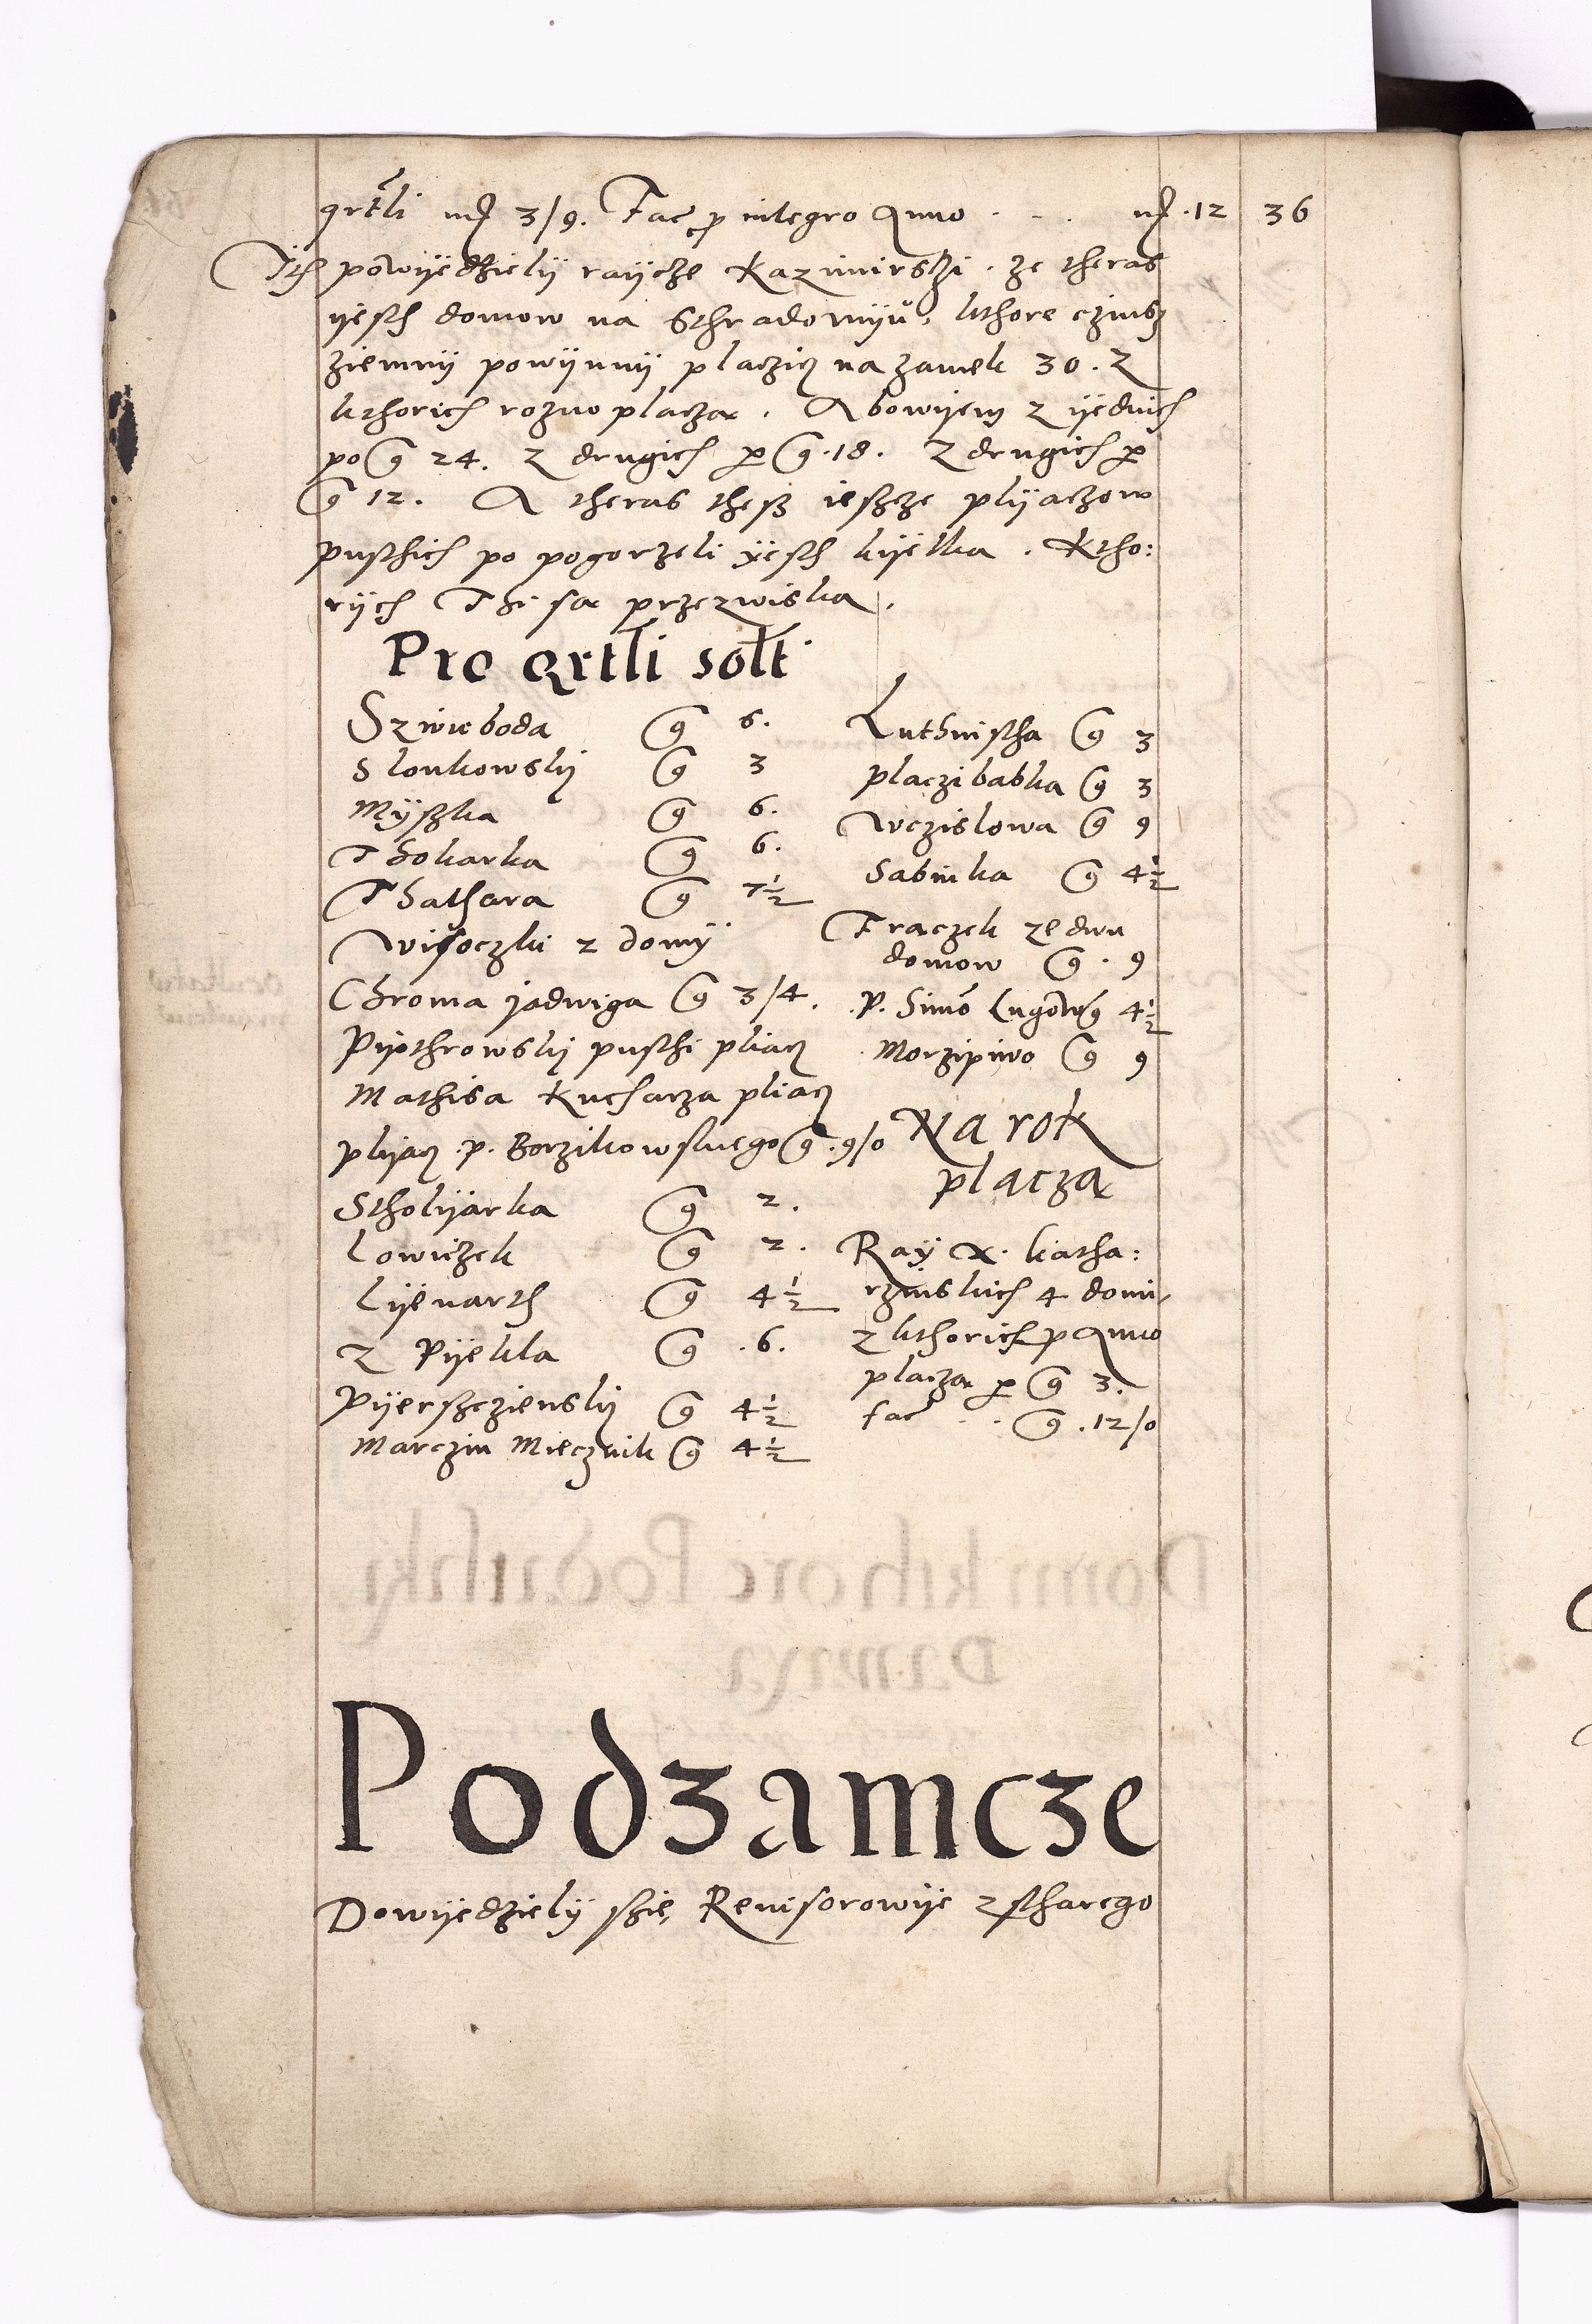 qrtli mr 3/9. Fac p integro Anno . - . mr .12 36
Ith powyedziely raycze Kazimirszi . ze theras
yesth domow na Sthradomyu, kthore czinsz
ziemny powynny placzicz na zamek 30 . Z
kthorich rozno placza . Abowyem z yednich
po g 24. Z drugich po g .18. Z drugich po
g 12. A theras thesz ieszcze plyaczow
pusthich po pogorzeli yesth kyelka . Ktho:
rych Thi sa przezwiska .
Pro qrtli solt
Szwieboda g 6.
Slonkowsky g 3
Myszka g 6.
Thokarka g 6.
Thathara g 7½
Wisoczki z domy
Chroma jadwiga g 3/4.
Pyothrowsky pusthi pliacz
Mathisa Kucharza pliacz
plyacz .p. Borzikowskiego g .9/0
Stholyarka g 2.
Lowiczek g 2.
Lyenarth g 4½
Z Pyekla g .6.
Pyerszcziensky g 4½
Marczin Miecznik g 4½
Luthnistha g 3
placzibabka g 3
Wczislowa g 9
Sabinka g 4½
Traczek ze dwu
domow g . 9
.P. Simo Lugow g 4½
Morzipiwo g 9
Na rok
placza
Ray X. katha:
rzinskich 4 domi,
z kthorich p Anno
placza po g 3.
fac . . g .12/0
Podzamcze
Dowyedziely szie, Revisorowye z stharego